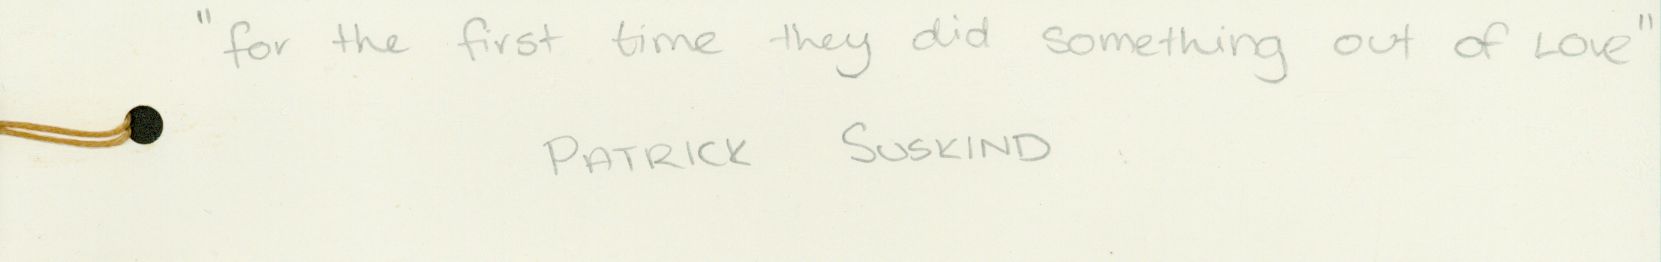 "for the first time they did something out of Love"
PATRICK SUSKIND